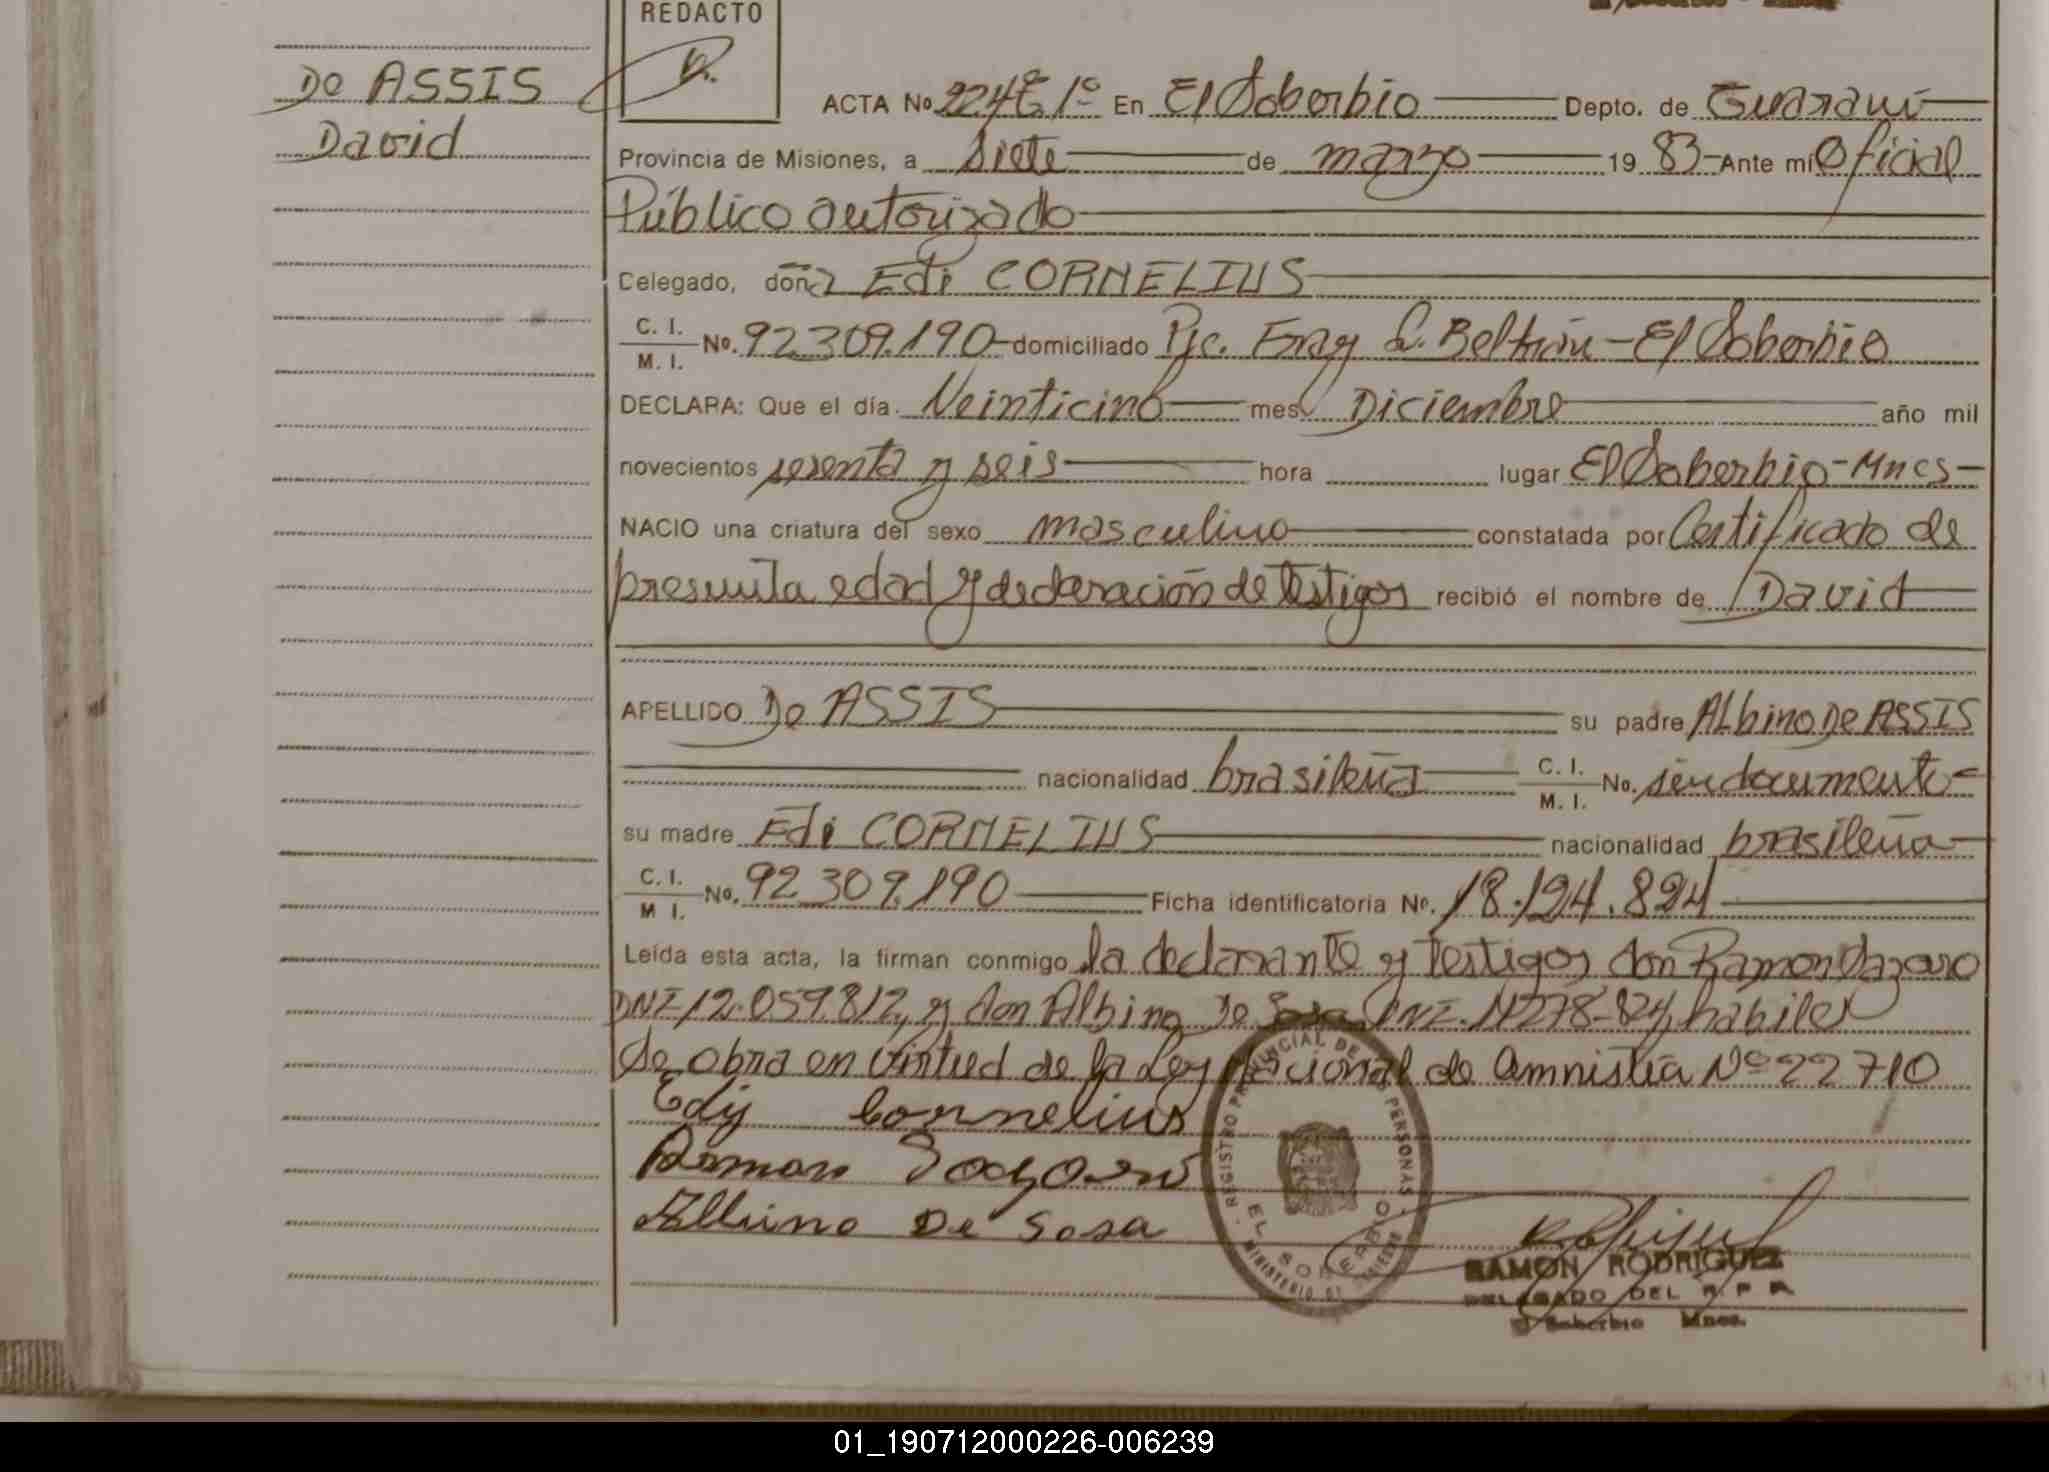 REDACTO
De ASSIS
David
ACTA No 224 Tº 1º En El Soberbio Depto. de Guaraní
Provincia de Misiones, a siete de marzo 19 83 Ante mí Oficial
Público autorizado
Delegado, doña Edi CORNELIUS
C. I. M. I. No. 92.309.190 domiciliado Pje. Fray L. Beltrán - El Soberbio
DECLARA: Que el día Veinticino mes Diciembre año mil
novecientos sesenta y seis hora lugar El Soberbio - Mnes
NACIO una criatura del sexo masculino constatada por Certificado de
presunta edad y declaración de testigos recibió el nombre de David
APELLIDO De ASSIS su padre Albino De ASSIS
nacionalidad brasileña C. I. M. I. No. sin documento
su madre Edi CORNELIUS nacionalidad brasileña
C. I. M I. No. 92.309.190 Ficha identificatoria No. 18.194.894
Leída esta acta, la firman conmigo la declarante y testigos don Ramon Lazaro
DNI 12.059.812, y don Albino De Sosa DNI. habiles
Se obra en virtud de la Ley Nacional de Amnistía Nº 22710
Edy Cornelius
Ramon
Albino De Sosa
REGISTRO PROVINCIAL DE PERSONAS
EL SOBERBIO
RAMON RODRIGUEZ
DELEGADO DEL R. P. P.
El Soberbio Mnes.
01_190712000226-006239